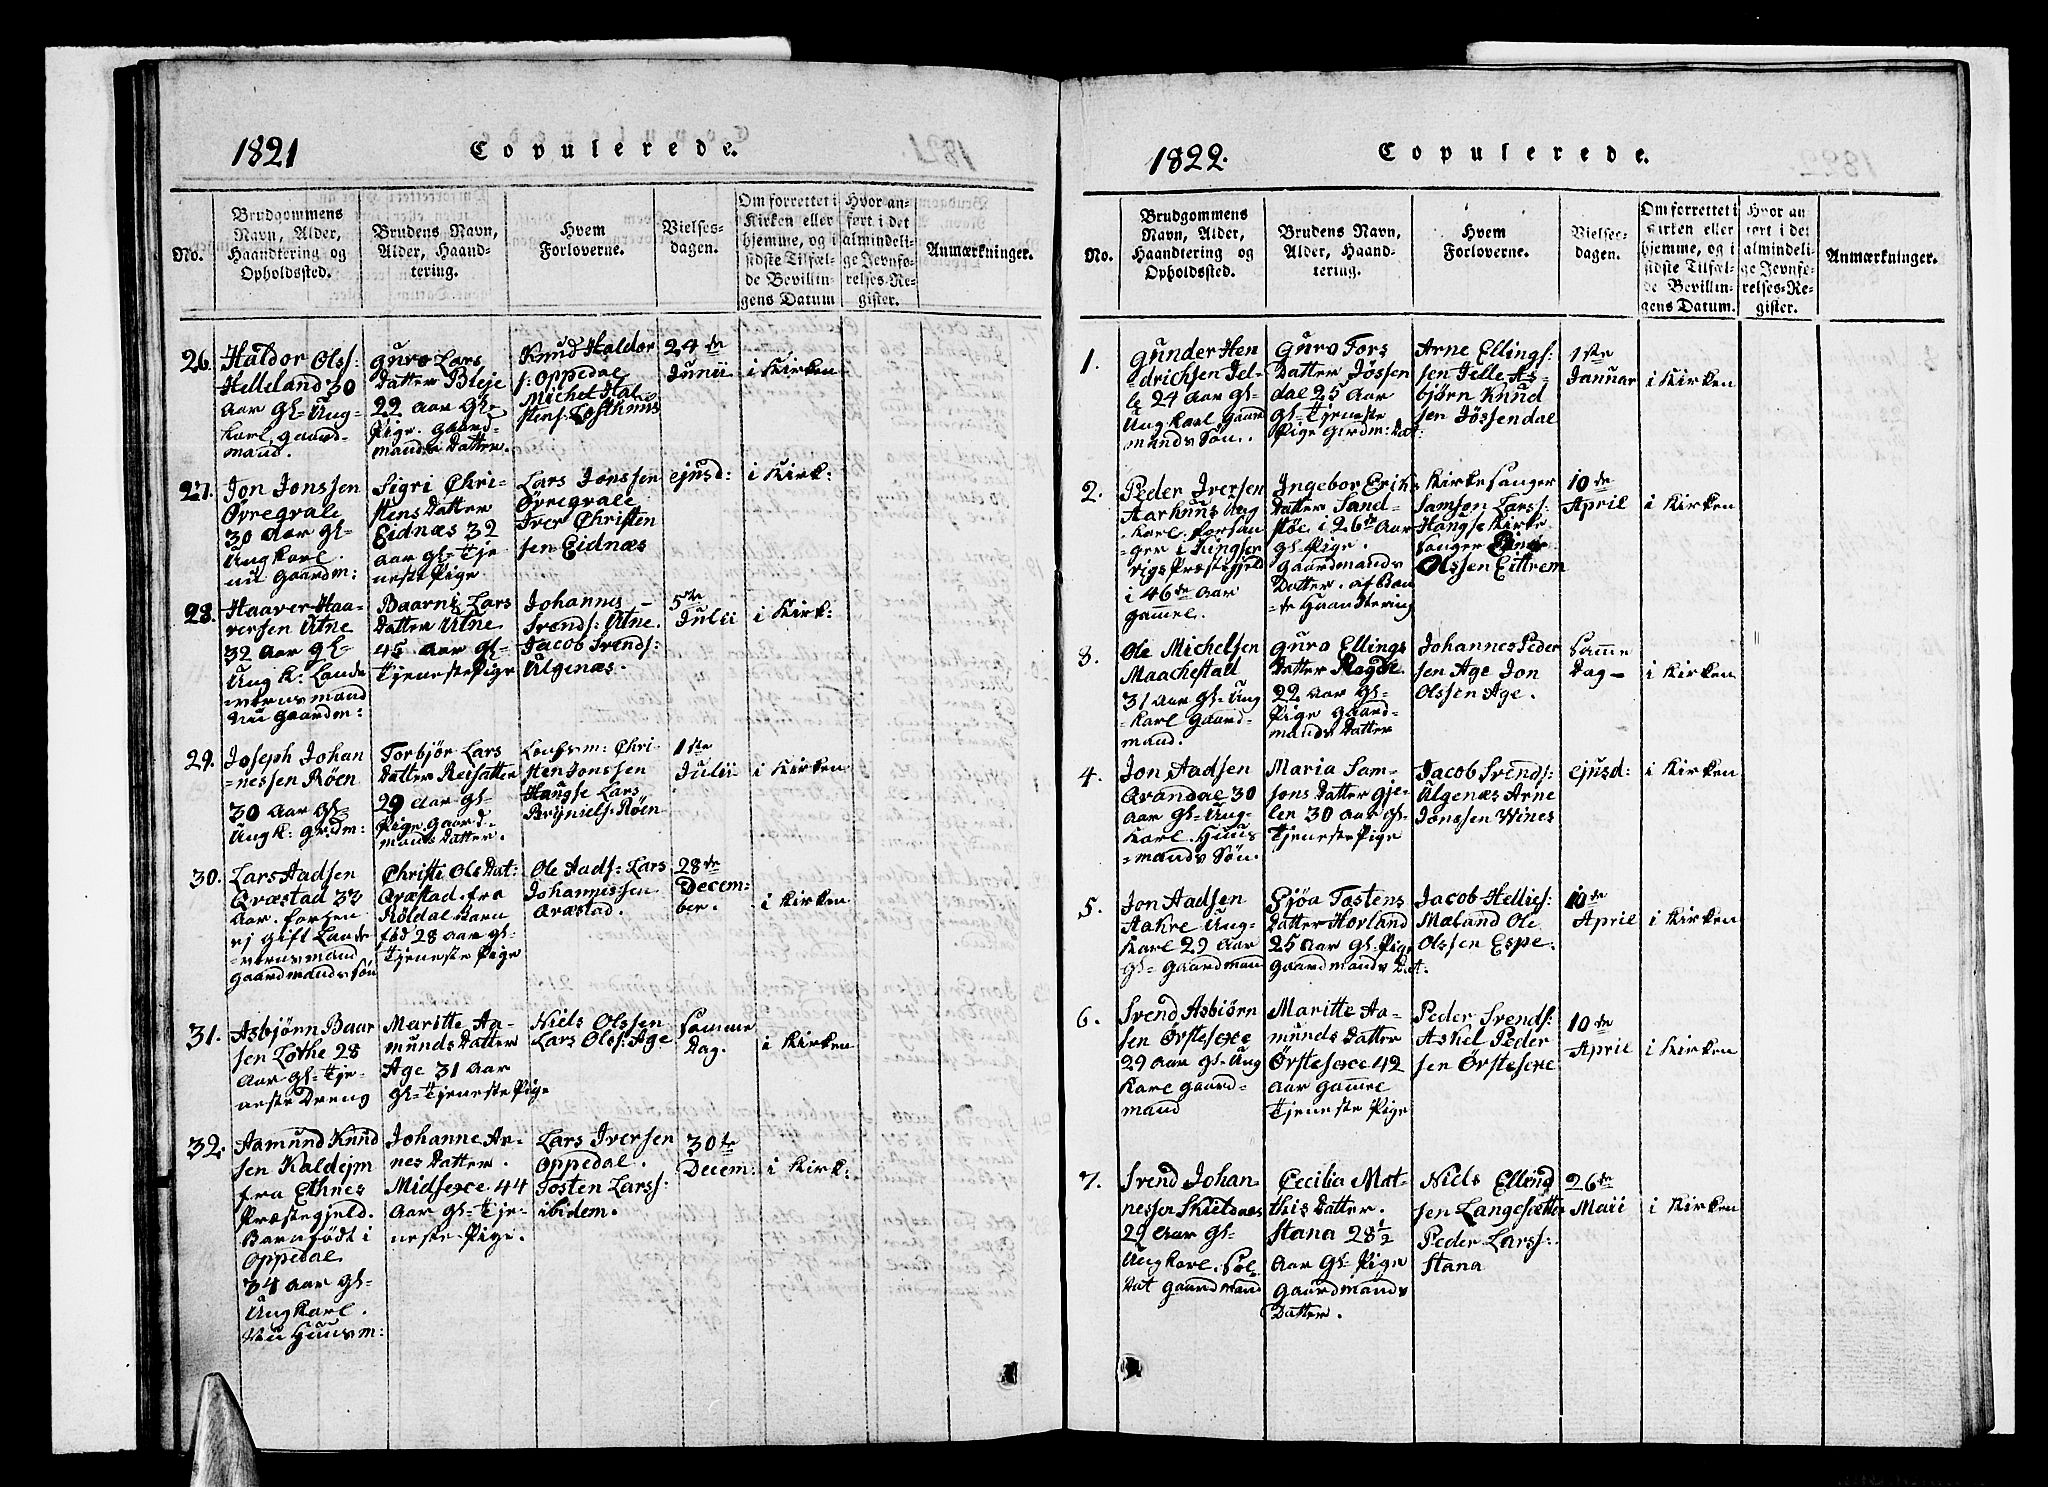 1821
Copulerede.
No.
Brudgommens
Navn, Alder,
Haandtering og
Opholdssted.
Brudens Navn,
Alder, Haand-
tering.
Hvem
Forloverne.
Vielses-
dagen.
Om forrettet i
Kirken eller
hjemme, og i
sidste Tilfæl-
de Bevillin-
gens Datum
Hvor an-
ført i det
almindeli-
ge Jevnfø-
relses-Re-
gister.
Anmærkninger.
26.
Haldor Olss:
Helleland 30
Aar Gl- Ung-
karl, Gaard-
mand.
Guro Lars
Datter Bleje
22 Aar Gl-
Pige. Gaard-
mands Datter.
Knud Haldor
s: Oppedal
Michel Hal-
stens: Lofthuus
24de
Junii
i Kirken
27.
Jon Jonssen
Øvregvale
30 Aar Gl-
Ungkarl.
nu Gaardm:
Sigri Chri-
stens Datter
Eidnæs 32
Aar Gl- Tje-
neste Pige
Lars Jonssen
Øvregvale
Iver Christen
sen Eidnæs
ejusd:
i Kirk:
28.
Haaver Haa-
versen Utne
32 Aar Gl-
Ung k: Lande
-verns mand
Nu Gaardm:
Baarni Lars
Datter Utne
45 Aar Gl-
Tjeneste Pige
Johannes
Svends: Utne.
Jacob Svends:
Ulgenæs.
5te
Julii
i Kirk:
29.
Joseph Johan
-nessen Röen
30 Aar Gl-
Ungk: Grdm:
Torbjör Lars
Datter Reisæter
29 Aar Gl-
Pige Gaard-
mands Datter.
Lensm: Chri-
sten Jonssen
Haugse Lars
Bryniels: Röen
1ste
Julii
i Kirken
30.
Lars Aadsen
Qvæstad 33
Aar. forhen
ej gift Lande
-verns mand
Gaardmands Søn
Christi Ols Dat:
Qvæstad. fra
Röldal Barn
fød 28 Aar Gl-
Tjeneste Pige
Ole Aads: Lars
Johannissen
Qvæstad.
28de
Decem-
ber.
i Kirken
31.
Asbjörn Baar
sen Lothe 28
Aar Gl- Tje-
neste Dreng
Maritte Aa-
munds Datter
Age 31 Aar
Gl- Tjeneste Pige
Niels Olssen
Lars Olss: Age
Samme
Dag.
i Kirken
32.
Aamund Knud
sen Kaldejm
fra Ethnes
Præstegjeld.
Barnfödt i
Oppedal
34 Aar Gl-
Ungkarl.
Nu Huusm:
Johanne Ar-
nes Datter.
Midsexe 44
Aar Gl- Tje-
neste Pige.
Lars Iversen
Oppedal.
Tosten Larss:
ibidem.
30te
Decem:
i Kirk:
1822.
Copulerede.
No.
Brudgommens
Navn, Alder,
Haandtering og
Opholdssted.
Brudens Navn,
Alder, Haand-
tering.
Hvem
Forloverne.
Vielses-
dagen.
Om forrettet i
Kirken eller
hjemme, og i
sidste Tilfæl-
de Bevillin-
gens Datum.
Hvor an
ført i det
almindeli-
ge Jevnfø-
relses-Re-
gister.
Anmærkninger.
1.
Gunder Hen
-drichsen Jel-
le 24 Aar Gl-
Ungkarl Gaard
mands Søn.
Guro Tors
Datter Jössen
dal 25 Aar
Gl- Tjeneste
Pige Grdm: Dat:
Arne Ellings:
sen Jelle As-
björn Knud
sen Jössendal
1ste
Januar
i Kirken
2.
Peder Iversen
Aarhuus Ung
Karl. forsan
-ger i Kingser
vigs Præstegjeld
i 46de Aar
Gammel.
Ingebor Eriks
Datter Sand-
stöe i 26te Aar
Gl- Pige.
Gaardmands
Datter. af Bon
-de Haandtering
Kirkesanger
Samson Larss:
Haugse Kirke
sanger
Olssen Eittrem
10de
April
i Kirken
3.
Ole Michelsen
Maachestad
31 Aar Gl- Ung
-karl Gaard-
mand.
Guro Ellings
Datter Ragde
22 Aar Gl-
Pige Gaard-
mands Datter
Johannes Peder
sen Age Jon
Olssen Age.
Samme
Dag-
i Kirken
4.
Jon Aadsen
Qvandal 30
Aar Gl- Ung-
Karl. Huus
-mands Søn.
Maria Sam-
sons Datter Gje-
len 30 Aar Gl-
Tjeneste Pige
Jacob Svends:
Ulgenæs Arne
Jonssen Wines
ejusd:
i Kirken
5.
Jon Aadsen
Aakre Ung-
Karl 29 Aar
Gl- Gaardmand
Sjöa Tostens
Datter Hovland
25 Aar Gl- Pige
Gaardmands Dat:
Jacob Hellies:
Mæland Ole
Olssen Espe.
10de
April
i Kirken
6.
Svend Asbiörn
sen Örstesexe
29 Aar Gl- Ung
Karl Gaard-
mand
Maritte Aa-
munds Datter
Örstesexe 42
Aar Gamel
Tjeneste Pige
Peder Svends:
Askel Peder
sen Örstesexe
10de
April
i Kirken
7.
Svend Johan-
nessen Skieldnæs
29 Aar Gl-
Ungkarl. Sol-
dat Gaardmand
Cecilia Mat-
this Datter.
Stana 28 1/2
Aar Gl- Pige
Gaardmands
Datter.
Niels Ellend
sen Langesætter
Peder Larss:
Stana
26de
Maii
i Kirken